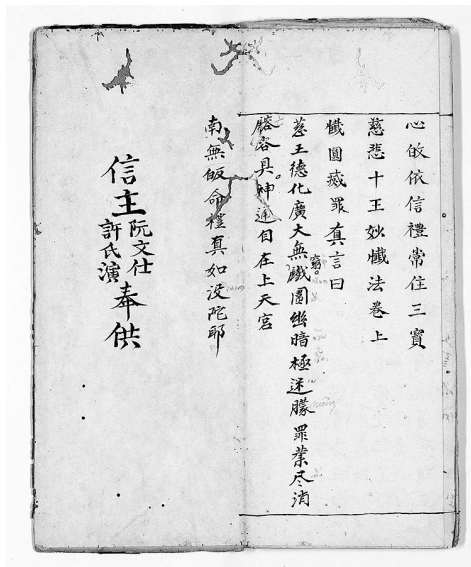 心皈依信禮常住三寶
慈悲十王妙懺法卷上
懺圓滅罪真言曰
慈王德化廣大無窮懺圓幽暗極迷朦罪業尽消
容具神通自在上天宮
南無皈命禮真如没陀耶
信主阮文仕許氏演奉供